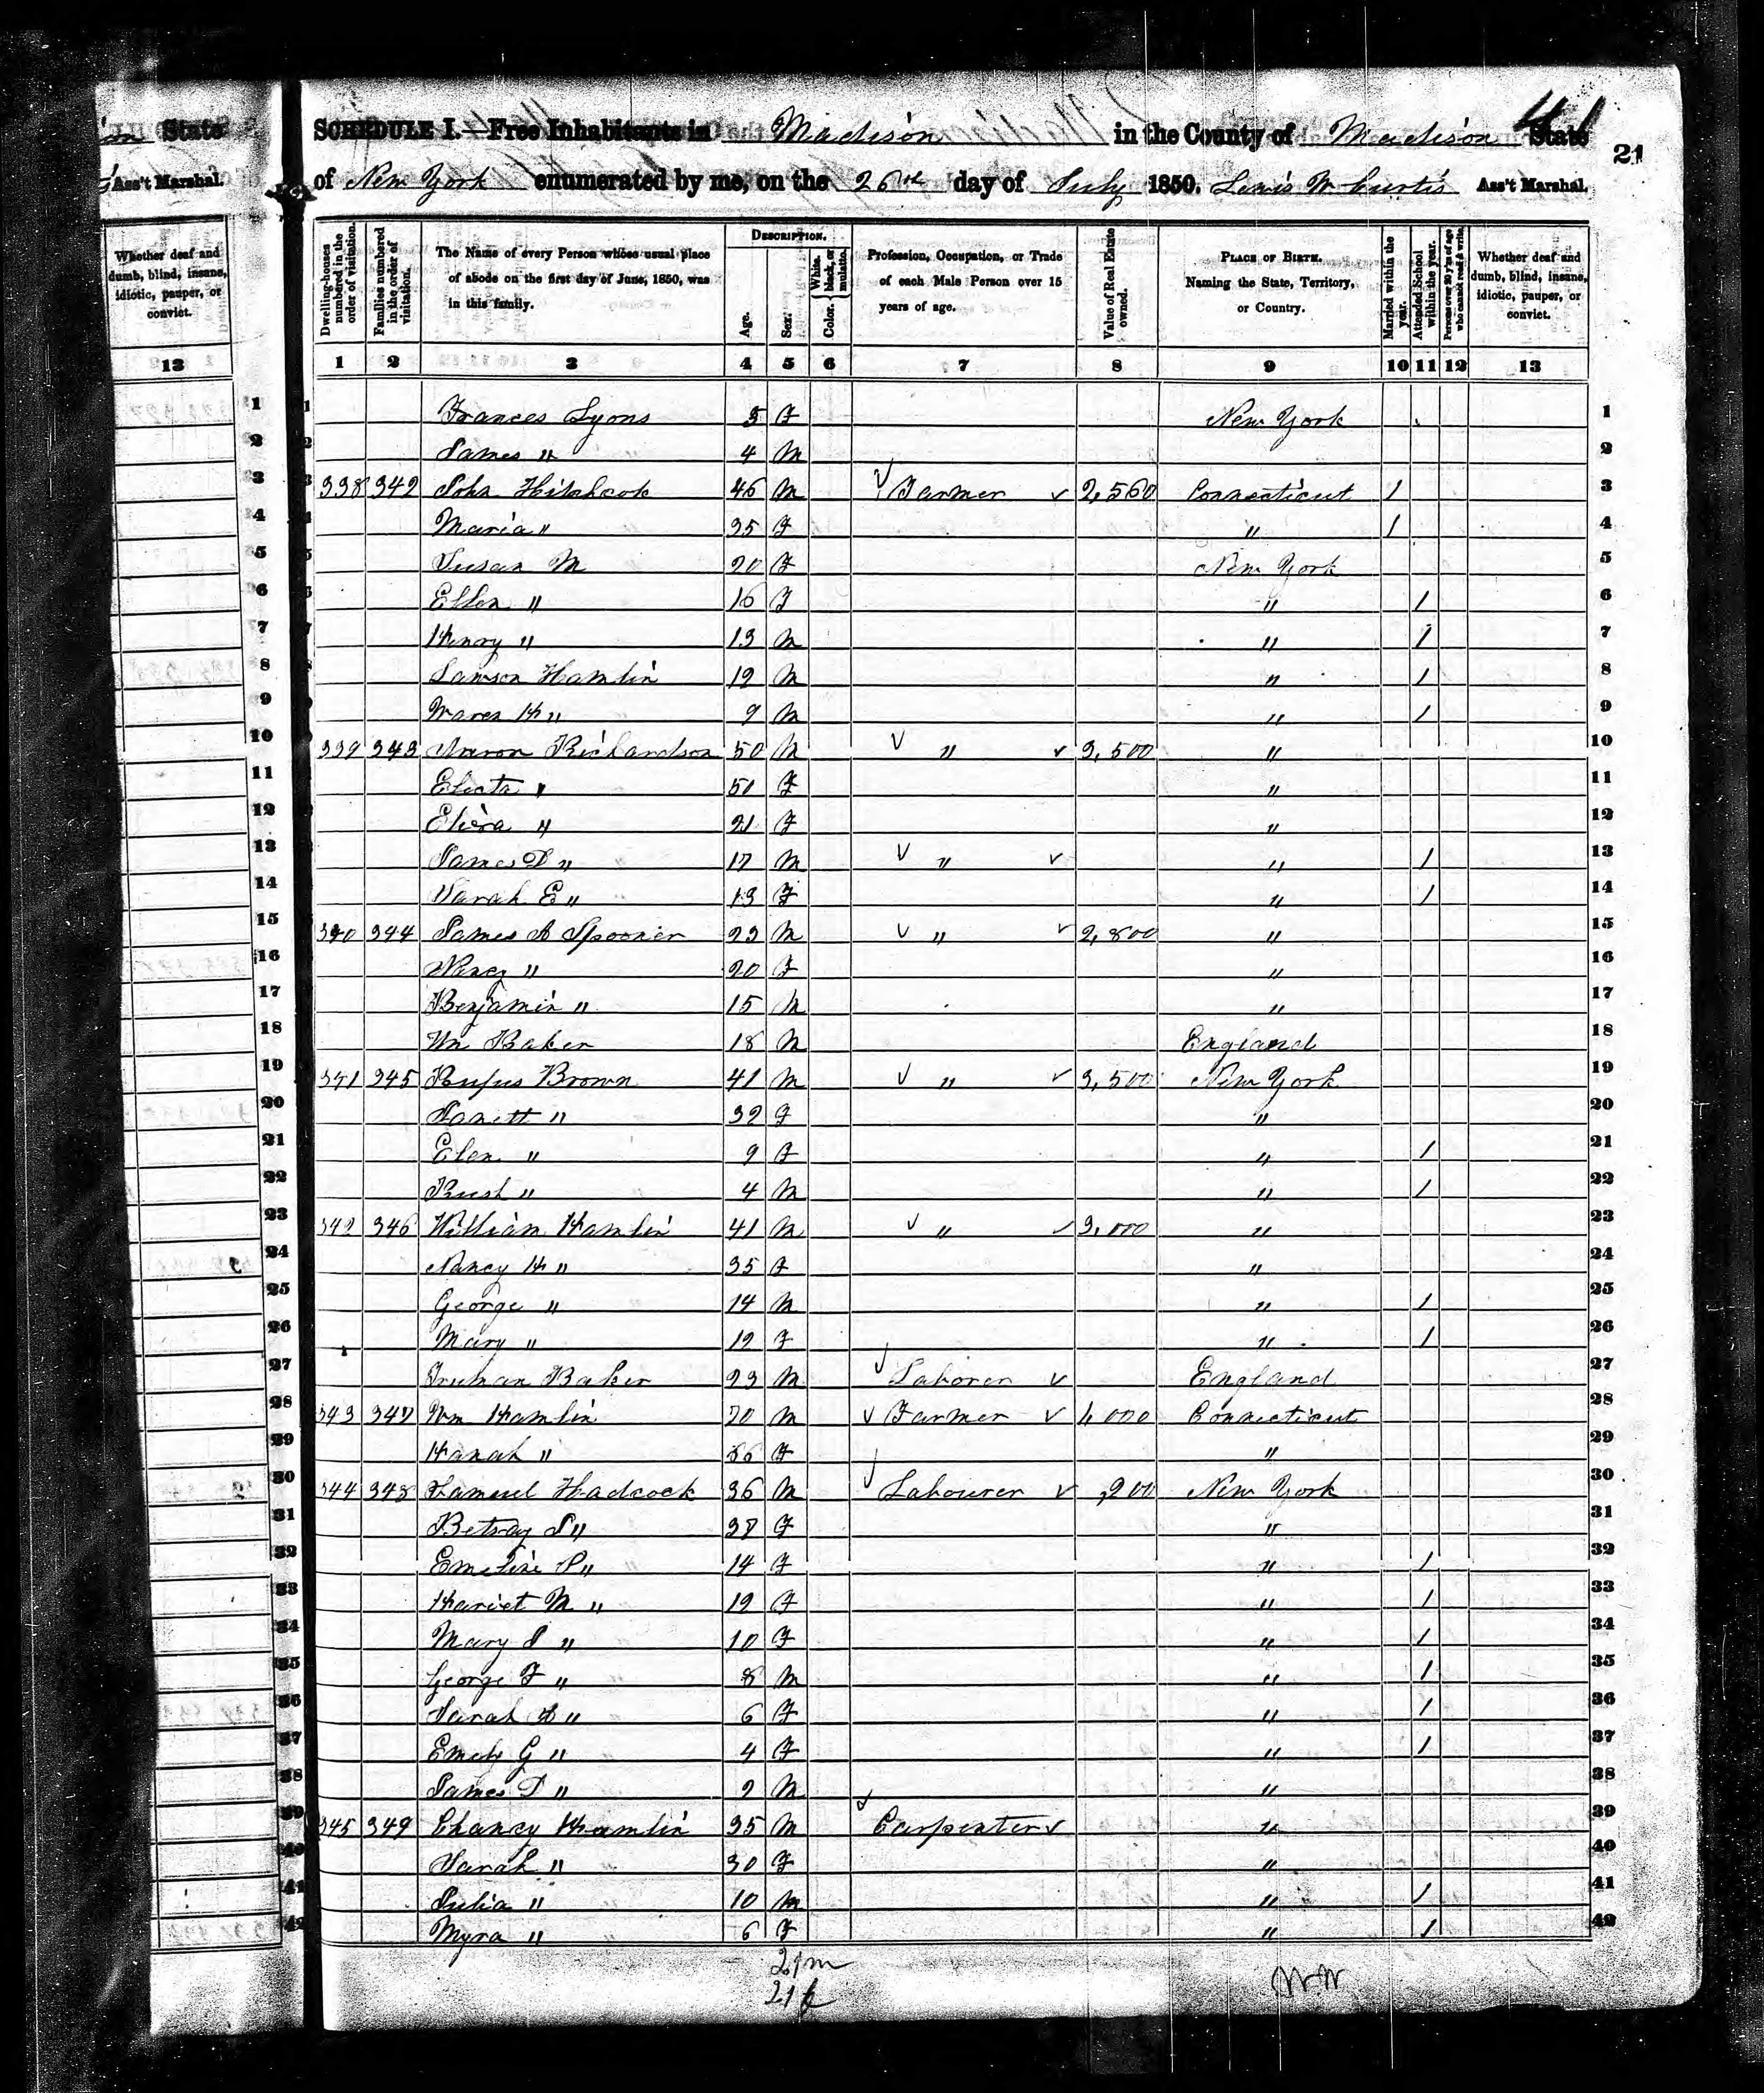 on State
Ass't Marshal.
Whether deaf and dumb, blind, insane, idiotic, pauper, or convict.
13
41
21
SCHEDULE I.—Free Inhabitants in Madison in the County of Madison State
of New York enumerated by me, on the 26th day of July 1850. Lewis W Curtis Ass't Marshal.
Dwelling-houses numbered in the order of visitation.
Families numbered in the order of visitation.
The Name of every Person whose usual place of abode on the first day of June, 1850, was in this family.
DESCRIPTION.
Age.
Sex.
Color. White, black, or mulatto.
Profession, Occupation, or Trade of each Male Person over 15 years of age.
Value of Real Estate owned.
PLACE OF BIRTH. Naming the State, Territory, or Country.
Married within the year.
Attended School within the year.
Persons over 20 y'rs of age who cannot read & write.
Whether deaf and dumb, blind, insane, idiotic, pauper, or convict.
1 2 3 4 5 6 7 8 9 10 11 12 13
1 Frances Lyons F New York 1
2 James " 4 M 2
3 338 342 John Hitchcok 46 M Farmer 2,560 Connecticut 1 3
4 Maria " 35 F " 1 4
5 Susan M 20 F New York 5
6 Ellen " 16 F " 1 6
7 Henry " 13 M " 1 7
8 Lawson Hamlin 12 M " 1 8
9 H " 9 M " 1 9
10 339 343 Richardson 50 M " 3,500 " 10
11 Electa " 51 F " 11
12 " 21 F " 12
13 James D " 17 M " " 1 13
14 Sarah E " 13 F " 1 14
15 340 344 James A Spooner 23 M " 2,800 " 15
16 " 20 F " 16
17 Benjamin " 15 M " 17
18 Wm Baker 18 M England 18
19 341 345 Rufus Brown 41 M " 3,500 New York 19
20 Janett " 32 F " 20
21 Elen " 9 F " 1 21
22 " 4 M " 1 22
23 342 346 William Hamlin 41 M " 3,000 " 23
24 Nancy H " 35 F " 24
25 George " 14 M " 1 25
26 Mary " 12 F " 1 26
27 Truman Baker 23 M Laborer England 27
28 343 347 Wm Hamlin 70 M Farmer 1,000 Connecticut 28
29 Hanah " 66 F " 29
30 344 348 Samuel Hadcock 36 M Labourer ,200 New York 30
31 Betsey S " F " 31
32 Emeline P " 14 F " 1 32
33 Hariet M " 12 F " 1 33
34 Mary S " 10 F " 1 34
35 George F " 8 M " 1 35
36 Sarah " 6 F " 1 36
37 Emely G " 4 F " 1 37
38 James D " 2 M " 38
39 345 349 Chancy Hamlin 35 M Carpenter " 39
40 Sarah " 30 F " 40
41 Julia " 10 M " 1 41
42 Myra " 6 F " 1 42
21 m
21 f